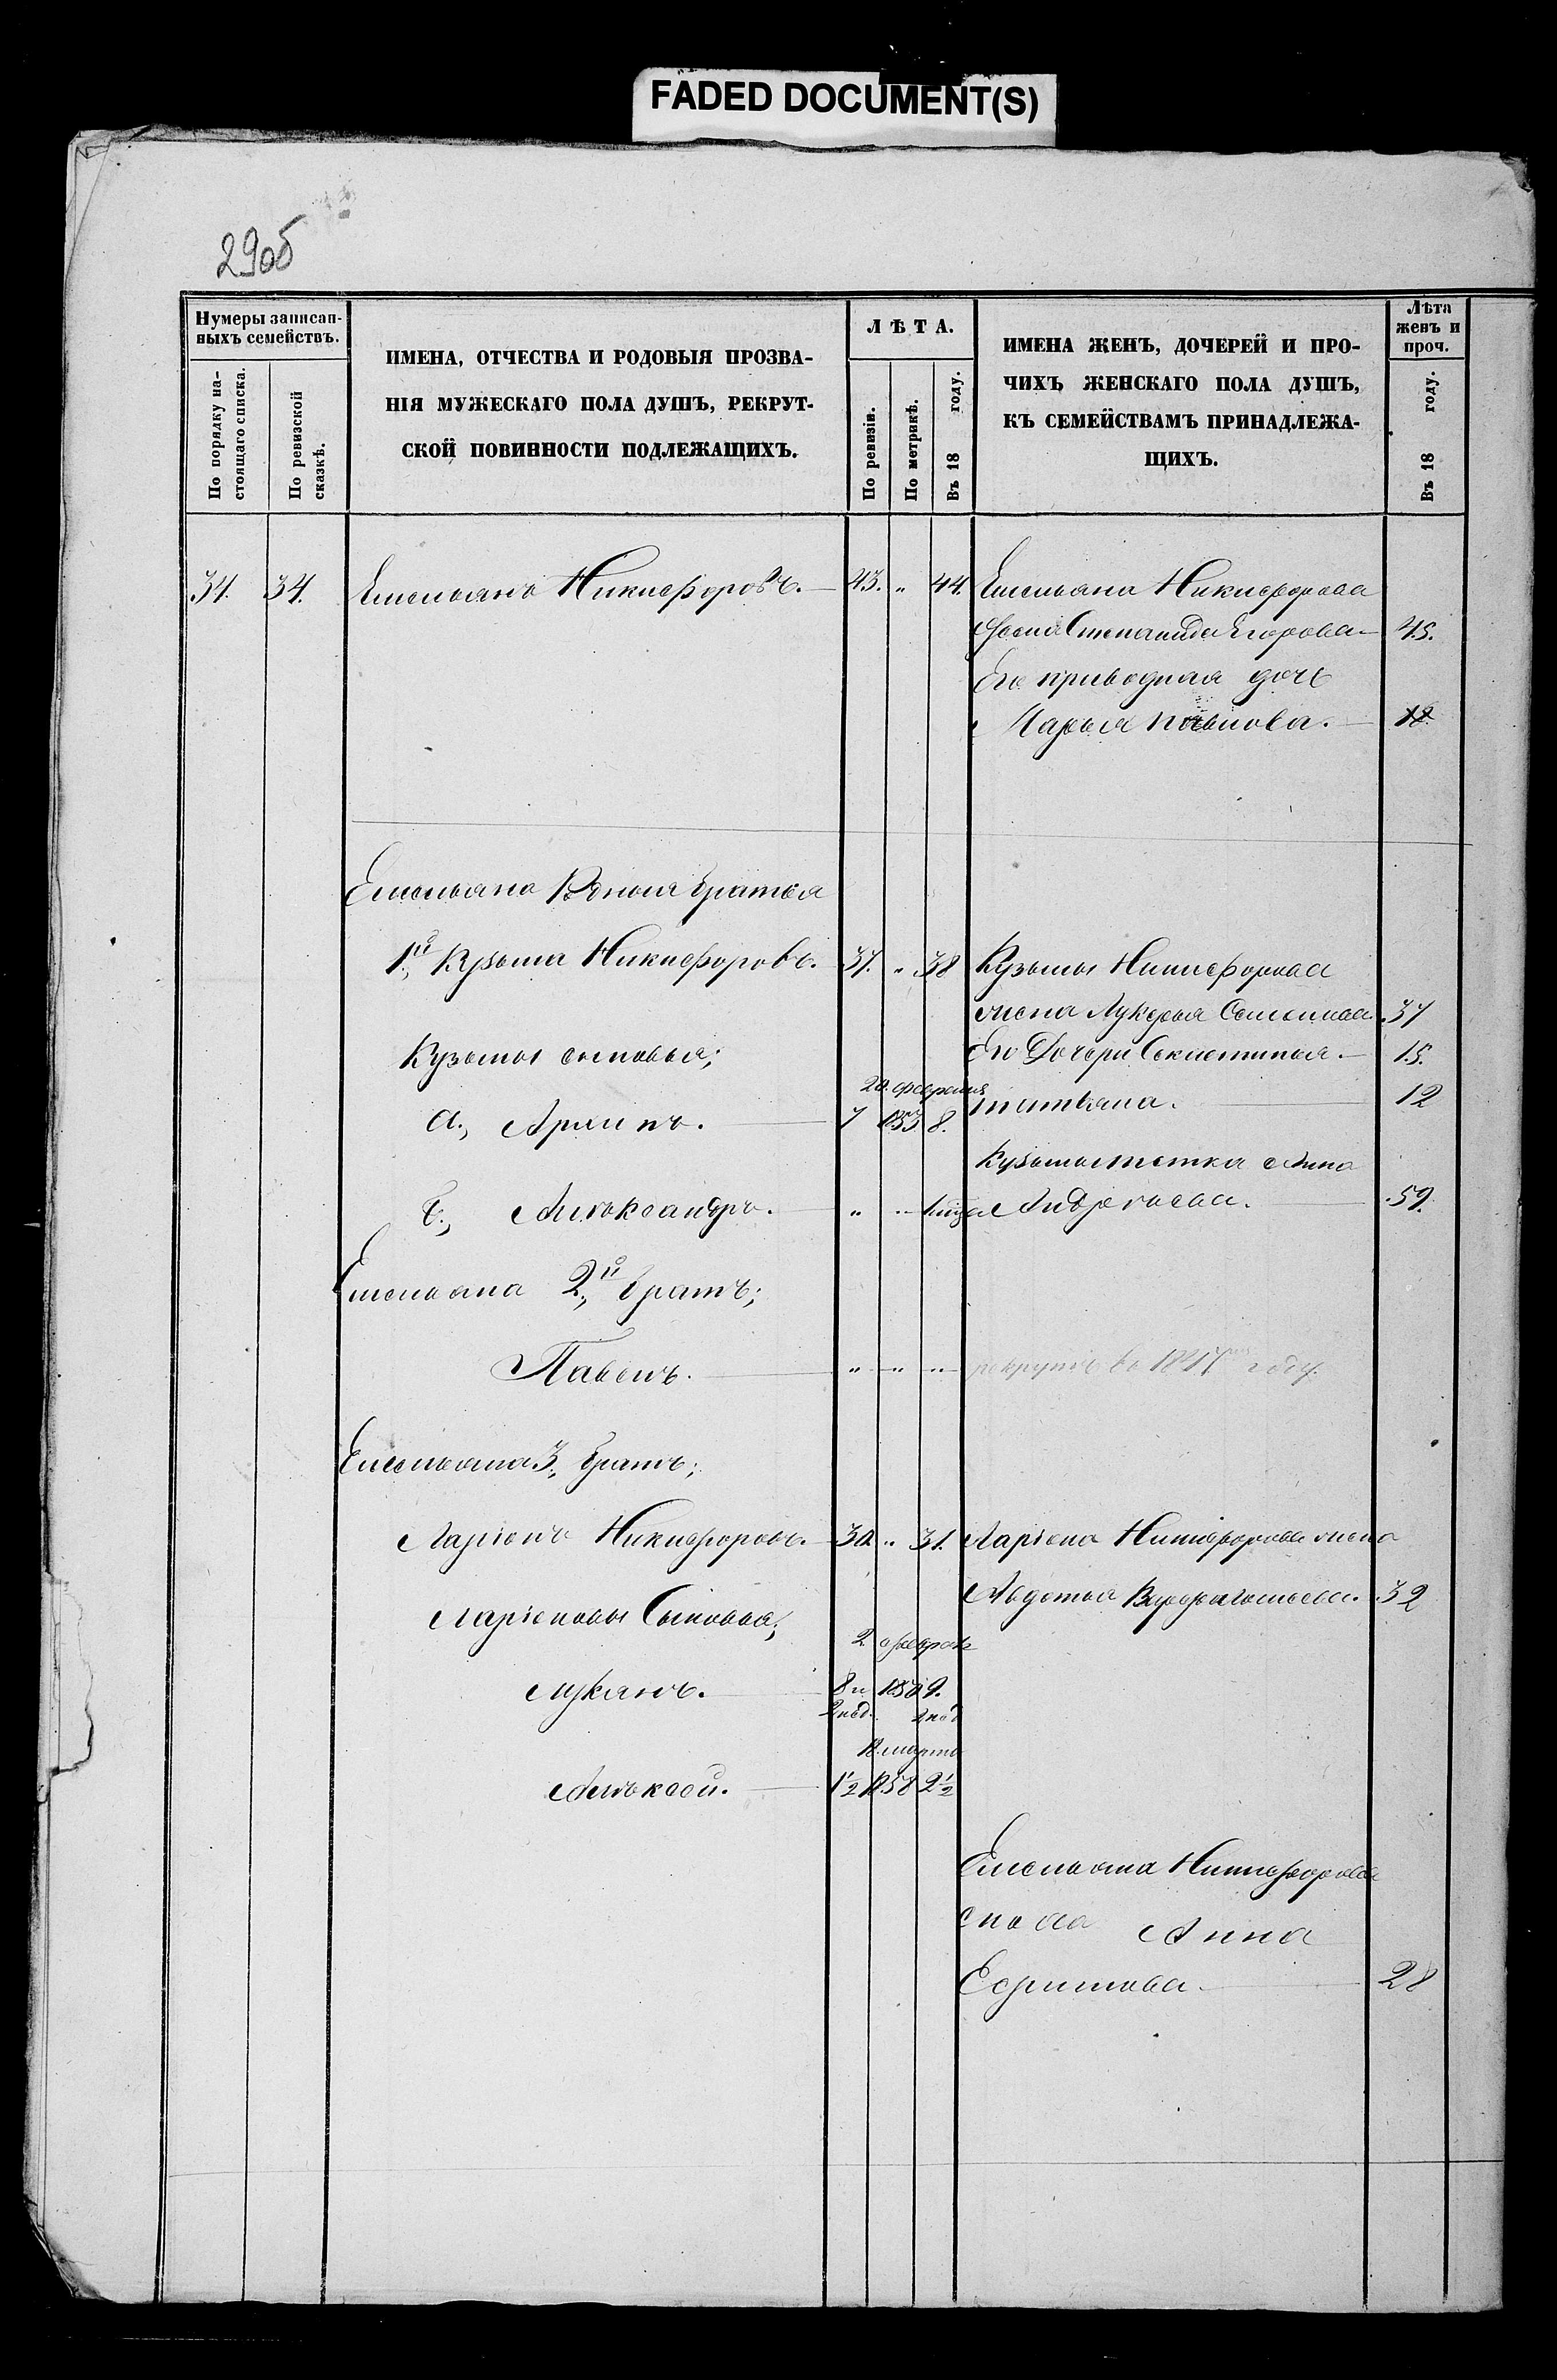 FADED DOCUMENT(S)
29об
Нумеры записан-
ныхъ семействъ.
По порядку на-
стоящаго списка.
По ревизской
сказкѣ.
ИМЕНА, ОТЧЕСТВА И РОДОВЫЯ ПРОЗВА-
НІЯ МУЖЕСКАГО ПОЛА ДУШЪ, РЕКРУТ-
СКОЙ ПОВИННОСТИ ПОДЛЕЖАЩИХЪ.
ЛѢТА.
По ревизіи.
По метрикѣ.
Въ 18 году.
ИМЕНА ЖЕНЪ, ДОЧЕРЕЙ И ПРО-
ЧИХЪ ЖЕНСКАГО ПОЛА ДУШЪ,
КЪ СЕМЕЙСТВАМЪ ПРИНАДЛЕЖА-
ЩИХЪ.
Лѣта
женъ и
проч.
Въ 18 году.
34. 34. Емельянъ Никифоровъ. 43. " 44. Емельяна Никифорова
жена Степанида Егорова 45.
Его приводная дочь
Марья Павлова. 18.
Емельяна Родныя братья
1й Кузьма Никифоровъ. 37. " 38 Кузьмы Никифорова
жена Лукерья Семенова 37
Кузьмы сыновья; Его Дочери 15.
20. февраля
а., Архипъ. 7 853 8. татьяна. 12
Кузьмы тетка Анна
б., Александръ. " " Андреева. 59.
Емельяна 2й братъ;
Павелъ. " " " рекрутъ въ 1847 году.
Емельяна 3, братъ;
Ларіонъ Никифоровъ. 30. " 31. Ларіона Никифорова жена
Авдотья 32
Ларіоновы Сыновья;
2 февраля
Лукянъ. 8 и 1850 9.
2 нед. 2 нед
18. марта
Алексѣй. 1½ 1858 2½
Емельяна Никифорова
сноха Анна
Ефимова. 28